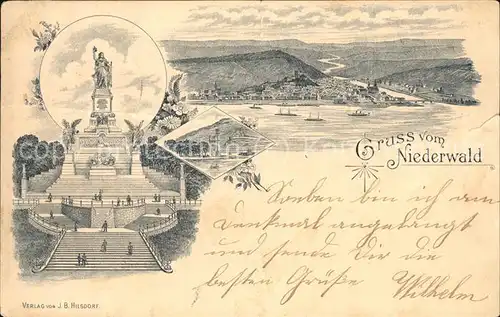 Gruss vom
Niederwald
Soeben bin ich am
Denkmal angelangt
und sende Dir die
besten Grüße Wilhelm
VERLAG VON J. B. HILSDORF.